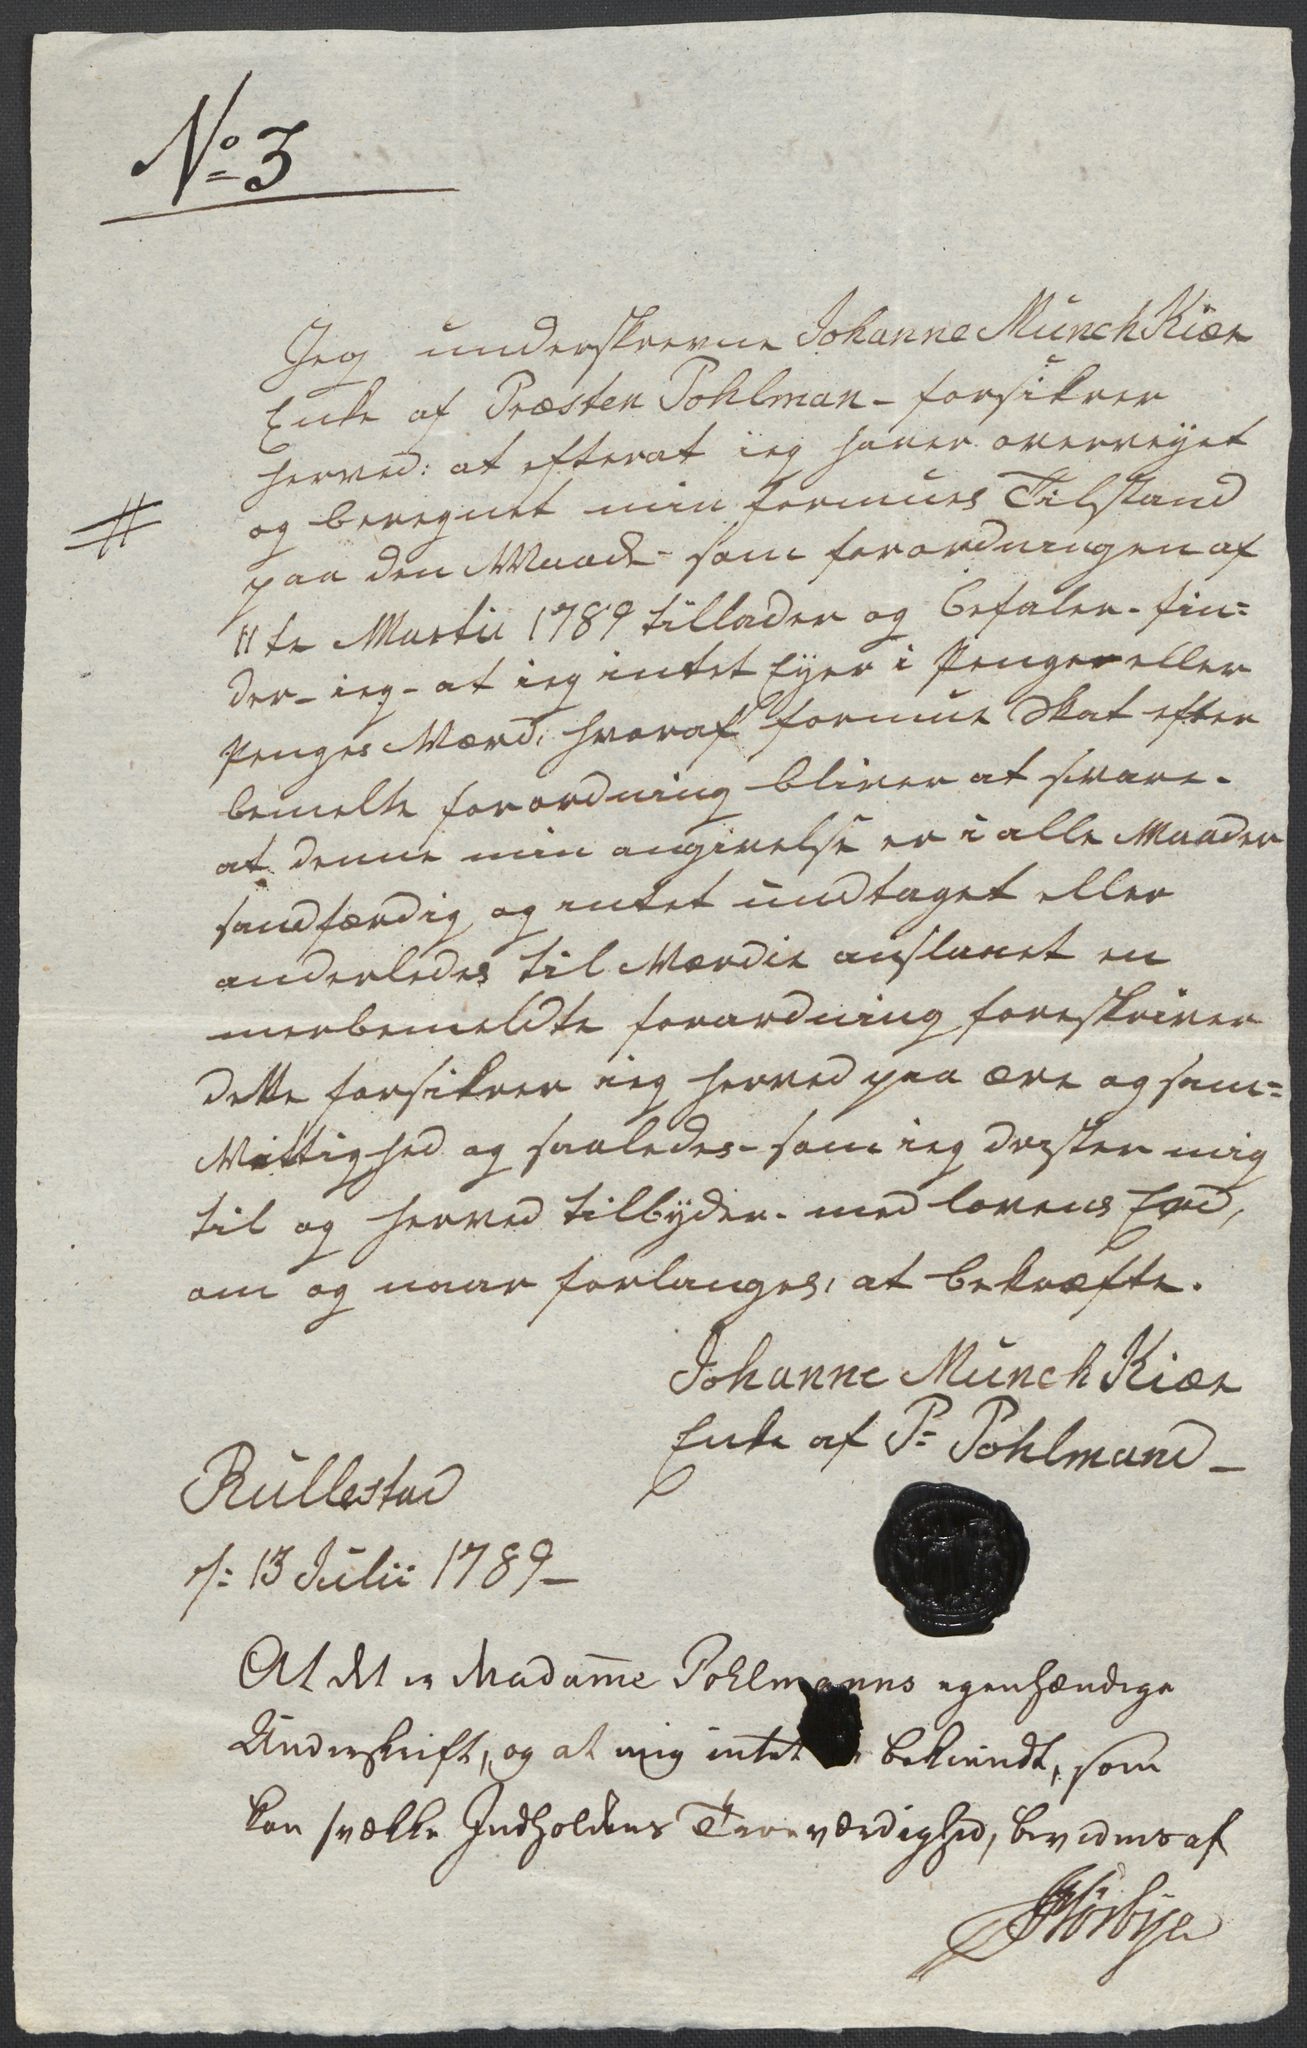 No 3
Jeg underskrevne Johanne Münch Kiær
Enke af Præsten Pohlman - forsikrer
herved: at efterat ieg haver overveyet
og beregnet min formues Tilstand
#
paa den Maade - som forordningen af
11te Martii 1789 tillader og befaler - fin=
der - ieg - at ieg intet Eyer i Penge eller
Penges Værd, hvoraf formue Skat efter
bemelte forordning bliver at svare -
at denne min angivelse er i alle Maader
sandfærdig og intet undtaget eller
anderledes til Værdie anslaaet en
merbemeldte forordning foreskriver
dette forsikrer ieg herved paa ære og sam=
Vittighed og saaledes - som ieg drister mig
til og herved tilbyder - med lovens Eed,
om og naar forlanges, at bekræfte.
Johanne Münch Kiær
Enke af P= Pohlmand -
Rullestad
13 Julii 1789 -
At det er Madame Pohlmanns egenhændige
Underskrift, og at mig intet er bekiendt, som
kan svække Indholdens Troeværdighed, bevidnes af